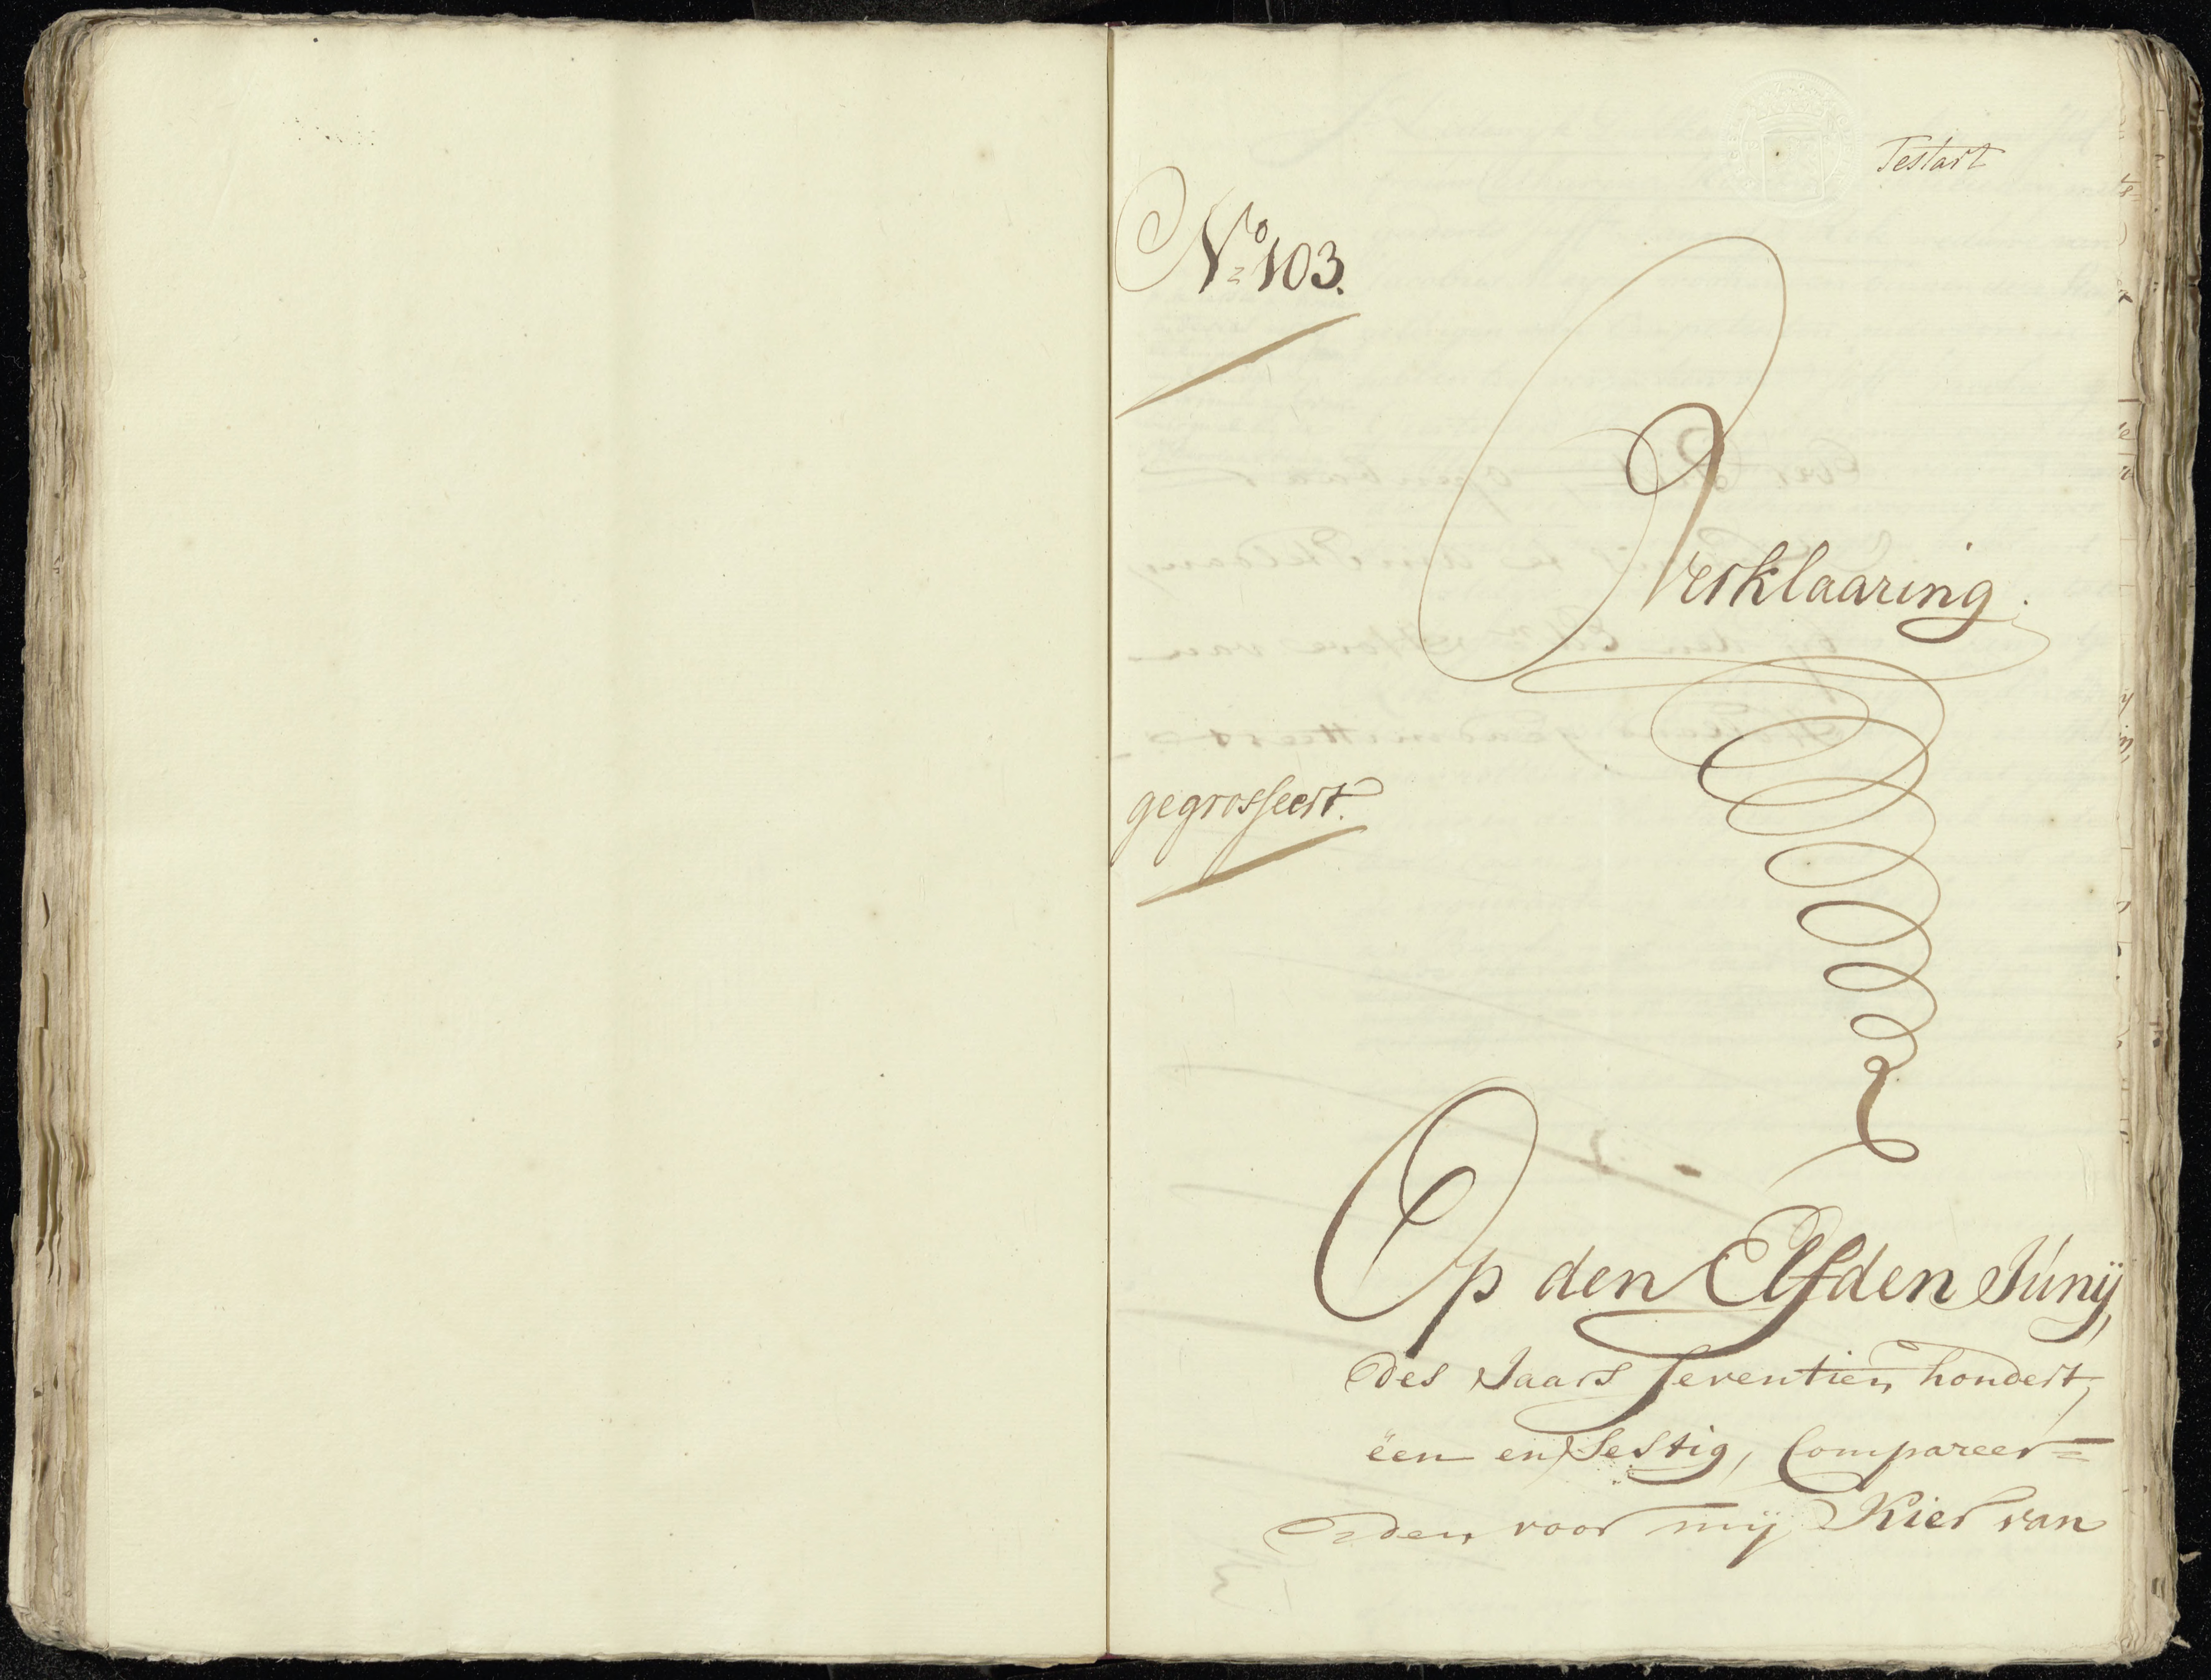 Testart
No 103.
Verklaaring.
gegrosseert.
Op den Elfden Junÿ,
des Jaars seventien hondert,
ëen en sestig, Compareer=
den voor mÿ Kier van